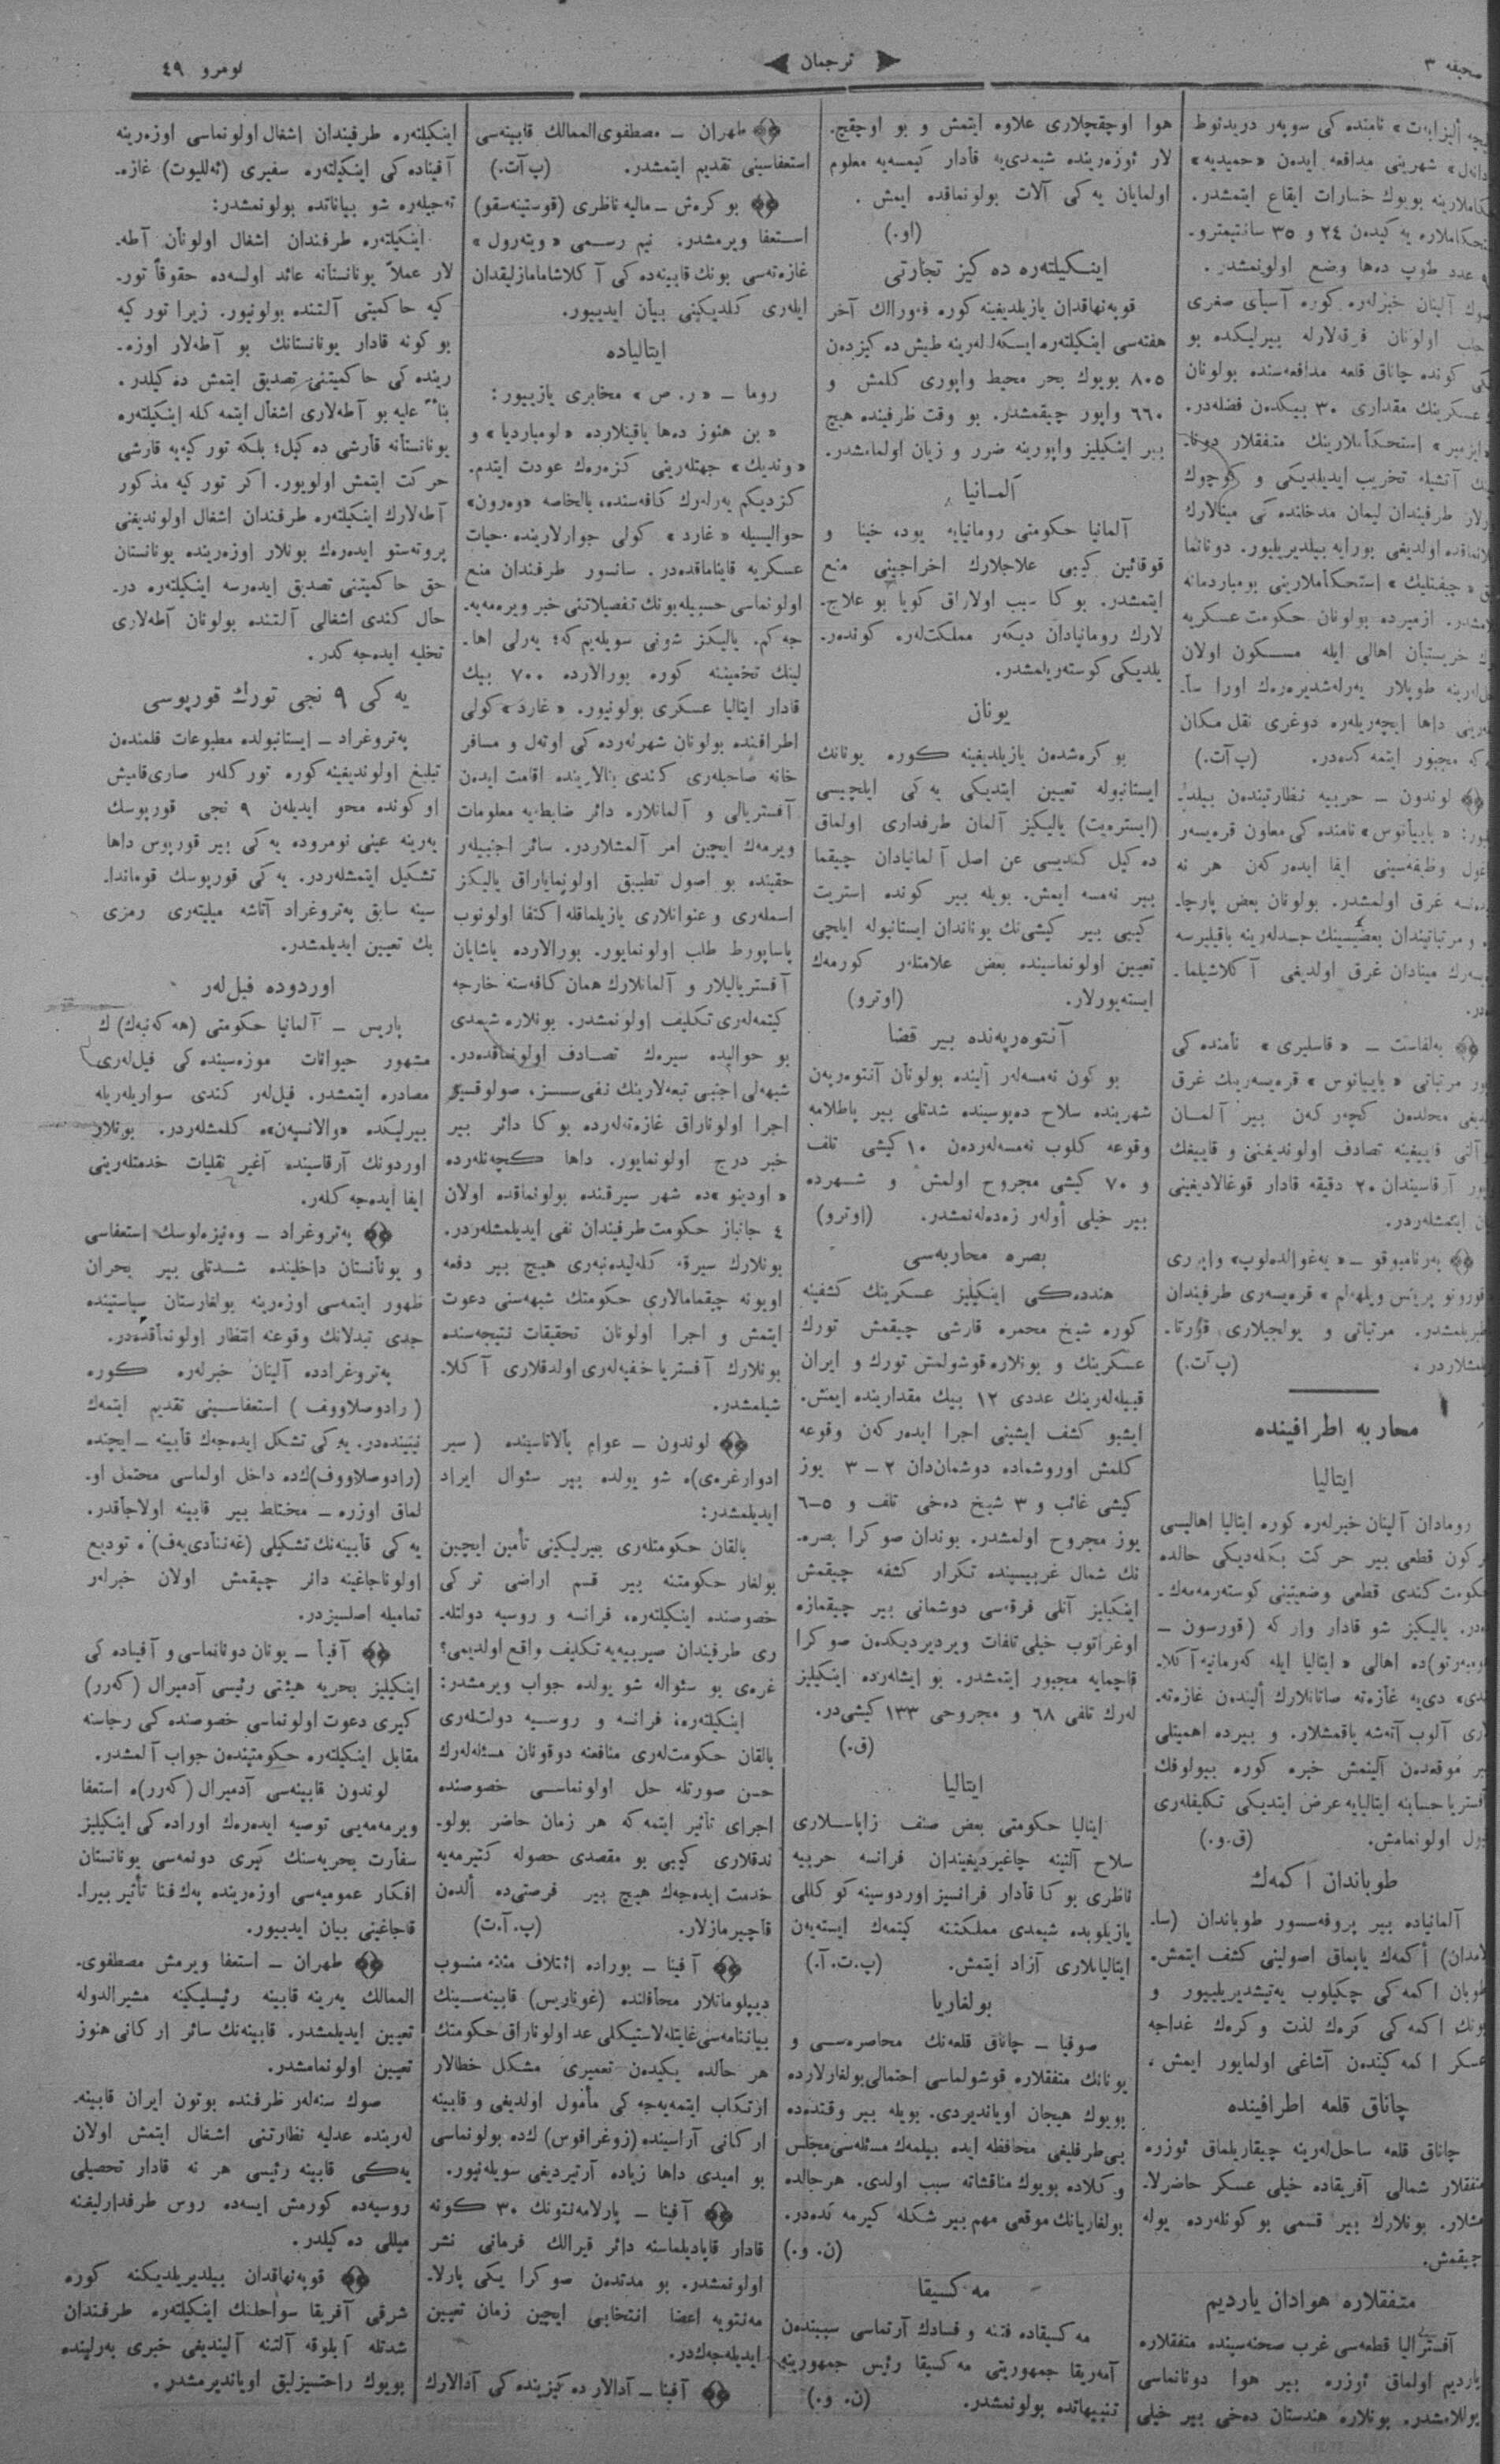 صحیفه ٣
ترجمان
نومرو ٤٩
یچه ألیزابه‌ت» نامنده كی سوپه‌ر دریدنوط
دانه‌ل» شهرینی مدافعه ایدەن «حمیدیه»
بویوك خسارات ایقاع ایتمشدر.
یه كیدەن ٢٤ و ٣٥ سانتیمترو-
عدد طوپ دەها وضع اولونمشدر.
آلینان خبرلەره كوره آسیأی صغری
جلب اولونان فرقه‌لارله بیرلیكده بو
كونده چاناق قلعه مدافعه‌سنده بولونان
عسكرینك مقداری ٣٠ بیكدەن فضله‌در.
ازمیر» استحكاملارینك متفقلار
آتشیله تخریب ایدیلدیكی و كوچوك
طرفیندان لیمان مدخلنده كی مینالارك
اولدیغی بورایه بیلدیریلیور. دونانما
«چفتلیك» استحكاملارینی بومباردمانه
ازمیرده بولونان حكومت عسكریه
خریستیان اهالی ایله مسكون اولان
طوپلار یه‌رله‌شدیره‌رەك اورا
داها ایچه‌ریله‌ره دوغری نقل مكان
مجبور ایتمه كده‌در. (پ آت.)
لوندون – حربیه نظارتیندەن
«باییانوس» نامنده كی معاون قره‌یسه‌ر
وظیفه‌سینی ایفا ایده‌ركەن هر نه
غرق اولمشدر. بولونان بعض پارچا-
و مرتباتیندان بعضیسینك جسدلەرینه باقیلیرسه
مینادان غرق اولدیغی آكلاشیلما-
یه‌لفاست – «قاسلیری» نامنده كی
مرتباتی «باییانوس» قره‌یسه‌رینك غرق
محلدەن كچه‌ركەن بیر آلمان
آلتی قاییغینه تصادف اولوندیغنی و قاییغك
آرقاسیندان ٢٠ دقیقه قادار قوغالادیغینی
ایتمشلەردر.
پرینس ویلهەلم» قره‌یسه‌ری طرفیندان
مرتباتی و یولجیلاری قورتا-
(پ آت.)
محاربه اطرافینده
ایتالیا
رومادان آلینان خبرلەره كوره ایتالیا اهالیسی
قطعی بیر حركت بكله‌دیكی حالده
كندی قطعی وضعیتینی كوسته‌رمه‌مه‌ك-
یالیكیز شو قادار وار كه (قورسون –
اومبه‌رتو)ده اهالی «ایتالیا ایله كه‌رمانیه
دی‌یه غازه‌ته صاتانلارك ألیندەن غازه‌ته-
آلوب آتەشه یاقمشلار. و بیرده اهمیتلی
موقعدەن آلینمش خبره كوره بیولوفك
آفستریا حسابنه ایتالیایه عرض ایتدیكی تكلیفلەری
اولونمامش. (ق.و.)
طوباندان اكمه‌ك
آلمانیاده بیر پروفه‌سسور طوباندان (سا-
ماندان) أكمه‌ك یاپماق اصولینی كشف ایتمش.
طوبان اكمه‌كی چكیلوب یه‌تیشدیریلیور و
بونك اكمه‌كی كره‌ك لذت و كره‌ك غداجه
عسكر اكمه‌كیندەن آشاغی اولمایور ایمش.
چاناق قلعه اطرافینده
چاناق قلعه ساحل‌لەرینه چیقاریلماق ئوزره
متفقلار شمالی آفریقاده خیلی عسكر حاضرلا-
مشلار. بونلارك بیر قسمی بو كونلەرده یوله
چیقمش.
متفقلاره هوادان یاردیم
آفسترالیا قطعه‌سی غرب صحنه‌سینده متفقلاره
یاردیم اولماق ئوزره بیر هوا دونانماسی
یوللامشدر. بونلاره هندستان دەخی بیر خیلی
هوا اوچقچلاری علاوه ایتمش و بو اوچقچ-
لار ئوزه‌رینده شیمدی‌یه قادار كیمسه‌یه معلوم
اولمایان یه‌كی آلات بولونماقده ایمش.
(او.)
اینكیلته‌ره ده‌كیز تجارتی
قوپه‌نهاقدان یازیلدیغینه كوره فه‌ورالك آخر
هفته‌سی اینكیلته‌ره ایسكه‌له‌لەرینه طیش ده‌كیزدەن
٨٠٥ بویوك بحر محیط واپوری كلمش و
٦٦٠ واپور چیقمشدر. بو وقت ظرفینده هیچ
بیر اینكیلیز واپورینه ضرر و زیان اولمامشدر.
آلمانیا
آلمانیا حكومتی رومانیایه یوده خینا و
قوقائین كیبی علاجلارك اخراجینی منع
ایتمشدر. بو كا سبب اولاراق كویا بو علاج-
لارك رومانیادان دیكه‌ر مملكت‌لەره كونده-
یلدیكی كوسته‌ریلمشدر.
یونان
بو كره‌شدەن یازیلدیغینه كوره یونانك
ایستانبوله تعیین ایتدیكی یه‌كی ایلچیسی
(ایستره‌یت) یالیكیز آلمان طرفداری اولماق
ده‌كیل كندیسی عن اصل آلمانیادان چیقما
بیر نه‌مسه ایمش. بویله بیر كونده استریت
كیبی بیر كیشی‌نك یوناندان ایستانبوله ایلچی
تعیین اولونماسینده بعض علامتلەر كورمه‌ك
ایسته‌یورلار. (اوترو)
آنتوه‌رپه‌نده بیر قضا
بو كون نه‌مسه‌لەر ألینده بولونان آنتوه‌رپه‌ن
شهرینده سلاح ده‌پوسینده شدتلی بیر پاطلامه
وقوعه كلوب نه‌مسه‌لەردەن ١٠ كیشی تلف
و ٧٠ كیشی مجروح اولمش و شهرده
بیر خیلی أولەر زه‌ده‌لەنمشدر. (اوترو)
بصره محاربه‌سی
هندده‌كی اینكیلیز عسكرینك كشفینه
كوره شیخ محمره قارشی چیقمش تورك
عسكرینك و بونلاره قوشولمش تورك و ایران
قبیله‌لەرینك عددی ١٢ بیك مقدارینده ایمش.
ایشبو كشف ایشینی اجرا ایده‌ركەن وقوعه
كلمش اوروشماده دوشماندان ٢–٣ یوز
كیشی غائب و ٣ شیخ دەخی تلف و ٥–٦
یوز مجروح اولمشدر. بوندان صوكرا بصره-
نك شمال غربیسینده تكرار كشفه چیقمش
اینكیلیز آتلی فرقه‌سی دوشمانی بیر چیقمازه
اوغراتوب خیلی تلفات ویردیردیكدەن صوكرا
قاچمایه مجبور ایتمشدر. بو ایشلەرده اینكیلیز
لەرك تلفی ٦٨ و مجروحی ١٣٣ كیشی‌در.
(ق.)
ایتالیا
ایتالیا حكومتی بعض صنف زاپاسلاری
سلاح آلتینه چاغیردیغیندان فرانسه حربیه
ناظری بو كا قادار فرانسیز اوردوسینه كوكللی
یازیلوبده شیمدی مملكتنه كیتمه‌ك ایسته‌یەن
ایتالیانلاری آزاد ایتمش. (پ.ت.آ.)
بولغاریا
صوفیا – چاناق قلعه‌نك محاصره‌سی و
یونانك متفقلاره قوشولماسی احتمالی بولغارلارده
بویوك هیجان اویاندیردی. بویله بیر وقتده‌ده
بی‌طرفلیغی محافظه ایده بیلمه‌ك مسئله‌سی مجلس
وكلاده بویوك مناقشاته سبب اولدی. هر حالده
بولغاریانك موقعی مهم بیر شكله كیرمه‌كده‌در.
(ن. و.)
مه‌كسیقا
مه‌كسیقاده فتنه و فسادك آرتماسی سببندەن
آمه‌ریقا جمهوریتی مه‌كسیقا رئیس جمهورینه
تنبیهاتده بولونمشدر. (ن. و.)
طهران – مصطفوی‌الممالك قابینه‌سی
استعفاسینی تقدیم ایتمشدر. (پ آت.)
بو كره‌ش – مالیه ناظری (قوستینه‌سقو)
استعفا ویرمشدر. نیم رسمی «ویته‌رول»
غازه‌ته‌سی بونك قابینه‌ده كی آكلاشامامازلیقدان
ایله‌ری كلدیكینی بیان ایدییور.
ایتالیاده
روما – «ر. ص» مخابری یازییور:
«بن هنوز دەها یاقینلارده «لومباردیا» و
«وندیك» جهتلەرینی كزه‌رەك عودت ایتدم.
كزدیكم یه‌رلەرك كافه‌سنده، بالخاصه «وه‌رون»
حوالیسیله «غارد» كولی جوارلارینده حیات
عسكریه قایناماقده‌در. سانسور طرفندان منع
اولونماسی حسبیله بونك تفصیلاتنی خبر ویره‌مه‌یه-
جه‌كم. یالیكز شونی سویله‌یم كه؛ یه‌رلی اها-
لینك تخمیننه كوره بورالارده ٧٠٠ بیك
قادار ایتالیا عسكری بولونیور. «غارد» كولی
اطرافنده بولونان شهرلەرده كی اوته‌ل و مسافر
خانه صاحبلەری كندی بنالارینده اقامت ایدەن
آفستریالی و آلمانلاره دائر ضابطه‌یه معلومات
ویرمه‌ك ایچین امر آلمشلاردر. سائر اجنبیلەر
حقینده بو اصول تطبیق اولونمایاراق یالیكز
اسملەری و عنوانلاری یازیلماقله اكتفا اولونوب
پاساپورط طلب اولونمایور. بورالارده یاشایان
آفستریالیلار و آلمانلارك همان كافه‌سنه خارجه
كیتمه‌لەری تكلیف اولونمشدر. بونلاره شیمدی
بو حوالیده سیره‌ك تصادف اولونماقده‌در.
شبهه‌لی اجنبی تبعه‌لارینك نفی‌سی سس‌سز، صولوقسز
اجرا اولوناراق غازه‌ته‌لەرده بو كا دائر بیر
خبر درج اولونمایور. داها كچه‌نلەرده
«اودینو»ده شهر سیرقنده بولونماقده اولان
٤ جانباز حكومت طرفیندان نفی ایدیلمشلەردر.
بونلارك سیرقه كله‌لیده‌نبه‌ری هیچ بیر دفعه
اویونه چیقمامالاری حكومتك شبهه‌سنی دعوت
ایتمش و اجرا اولونان تحقیقات نتیجه‌سنده
بونلارك آفستریا خفیه‌لەری اولدقلاری آكلا-
شیلمشدر.
لوندون – عوام پالاتاسینده (سیر
ادوارغره‌ی)ه شو یولده بیر سئوال ایراد
ایدیلمشدر:
بالقان حكومتلەری بیرلیكینی تأمین ایچین
بولغار حكومتنه بیر قسم اراضی تركی
خصوصنده اینكیلته‌ره، فرانسه و روسیه دولتله-
ری طرفیندان صیربیه‌یه تكلیف واقع اولدیمی؟
غره‌ی بو سئواله شو یولده جواب ویرمشدر:
اینكیلته‌ره، فرانسه و روسیه دولت‌لەری
بالقان حكومت‌لەری منافعنه دوقونان مسئله‌لەرك
حسن صورتله حل اولونماسی خصوصنده
اجرای تأثیر ایتمه‌كه هر زمان حاضر بولو-
ندقلاری كیبی بو مقصدی حصوله كتیرمه‌یه
خدمت ایده‌جه‌ك هیچ بیر فرصتی‌ده ألدەن
قاچیرمازلار. (پ.آ.ت)
آفینا – بوراده ائتلاف مثلثه منسوب
دیپلوماتلار محافلنده (غوناریس) قابینه‌سینك
بیاننامه‌سی غایتله لاستیكلی عد اولوناراق حكومتك
هر حالده یكیدەن تعمیری مشكل خطالار
ارتكاب ایتمه‌یه‌جه‌كی مأمول اولدیغی و قابینه
اركانی آراسینده (زوغرافوس)ك‌ده بولونماسی
بو امیدی داها زیاده آرتیردیغی سویله‌نیور.
آفینا – پارلامه‌نتونك ٣٠ كونه
قادار قاپادیلماسنه دائر قیرالك فرمانی نشر
اولونمشدر. بو مدتدەن صوكرا یكی پارلا-
مه‌نتویه اعضا انتخابی ایچین زمان تعیین
ایدیله‌جه‌كدر.
آفینا – آدالار ده‌كیزینده كی آدالارك
اینكیلته‌ره طرفیندان اشغال اولونماسی اوزه‌رینه
آفیناده كی اینكیلته‌ره سفیری (ئه‌للیوت) غازه-
ته‌جیلەره شو بیاناتده بولونمشدر:
اینكیلته‌ره طرفندان اشغال اولونان آطه-
لار عملاً یونانستانه عائد اولسه‌ده حقوقاً تور-
كیه حاكمیتی آلتنده بولونیور. زیرا توركیه
بو كونه قادار یونانستانك بو آطه‌لار اوزه-
رینده كی حاكمیتنی تصدیق ایتمش ده‌كیلدر.
بناءً علیه بو آطه‌لاری اشغال ایتمه‌كله اینكیلته‌ره
یونانستانه قارشی ده‌كیل؛ بلكه توركیه‌یه قارشی
حركت ایتمش اولویور. اكر توركیه مذكور
آطه‌لارك اینكیلته‌ره طرفندان اشغال اولوندیغنی
پروته‌ستو ایده‌رەك بونلار اوزه‌رینده یونانستان
حق حاكمیتنی تصدیق ایده‌رسه اینكیلته‌ره در-
حال كندی اشغالی آلتنده بولونان آطه‌لاری
تخلیه ایده‌جه‌كدر.
یه‌كی ٩ نجی تورك قورپوسی
په‌تروغراد – ایستانبولده مطبوعات قلمندەن
تبلیغ اولوندیغینه كوره توركلەر صاری‌قامیش
اوكونده محو ایدیلەن ٩ نجی قورپوسك
یه‌رینه عینی نومروده یه‌كی بیر قورپوس داها
تشكیل ایتمشلەردر. یه‌كی قورپوسك قوماندا-
سینه سابق په‌تروغراد آتاشه میلیته‌ری رمزی
بك تعیین ایدیلمشدر.
اوردوده فیل‌لەر
پاریس – آلمانیا حكومتی (هه‌كه‌نبه‌ك)ك
مشهور حیوانات موزه‌سینده كی فیل‌لەری
مصادره ایتمشدر. فیل‌لەر كندی سواریلەریله
بیرلیكده «والانسیه‌ن»ه كلمشلەردر. بونلار
اوردونك آرقاسینده آغیر نقلیات خدمتلەرینی
ایفا ایده‌جه‌كلەر.
په‌تروغراد – وه‌نیزه‌لوسك استعفاسی
و یونانستان داخلینده شدتلی بیر بحران
ظهور ایتمه‌سی اوزه‌رینه بولغارستان سیاستینده
جدی تبدلاتك وقوعنه انتظار اولونماقده‌در.
په‌تروغرادده آلینان خبرلەره كوره
(رادوصلاووف) استعفاسینی تقدیم ایتمه‌ك
نیتینده‌در. یه‌كی تشكل ایده‌جه‌ك قابینه – ایچنده
(رادوصلاووف)ك‌ده داخل اولماسی محتمل او-
لماق اوزره – مختلط بیر قابینه اولاجاقدر.
یه‌كی قابینه‌نك تشكیلی (غه‌ننادی‌یه‌ف)ه تودیع
اولوناجاغینه دائر چیقمش اولان خبرلەر
تمامیله اصلسیزدر.
آفینا – یونان دونانماسی و آفیناده كی
اینكیلیز بحریه هیئتی رئیسی آدمیرال (كه‌رر)
كیری دعوت اولونماسی خصوصنده كی رجاسنه
مقابل اینكیلته‌ره حكومتیندەن جواب آلمشدر.
لوندون قابینه‌سی آدمیرال (كه‌رر)ه استعفا
ویرمه‌مه‌یی توصیه ایده‌رەك اوراده كی اینكیلیز
سفارت بحریه‌سنك كیری دونمه‌سی یونانستان
افكار عمومیه‌سی اوزه‌رینده پەك فنا تأثیر بیرا-
قاجاغینی بیان ایدییور.
طهران – استعفا ویرمش مصطفوی-
الممالك یه‌رینه قابینه رئیسلیكینه مشیرالدوله
تعیین ایدیلمشدر. قابینه‌نك سائر اركانی هنوز
تعیین اولونمامشدر.
صوك سنه‌لەر ظرفنده بوتون ایران قابینه-
لەرینده عدلیه نظارتنی اشغال ایتمش اولان
یه‌كی قابینه رئیسی هر نه قادار تحصیلی
روسیه‌ده كورمش ایسه‌ده روس طرفدارلیغنه
میللی ده‌كیلدر.
قوپه‌نهاقدان بیلدیریلدیكنه كوره
شرقی آفریقا سواحلنك اینكیلته‌ره طرفندان
شدتله آبلوقه آلتنه آلیندیغی خبری به‌رلینده
بویوك راحتسیزلیق اویاندیرمشدر.